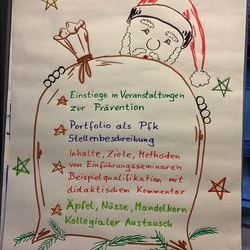 Einstiege in Veranstaltungen
zur Prävention
Portfolio als Pfk
Stellenbeschreibung
Inhalte, Ziele, Methoden
von Einführungsseminaren
Beispielqualifikation mit
didaktischen Kommentar
Äpfel, Nüsse, Mandelkern
Kollegialer Austausch